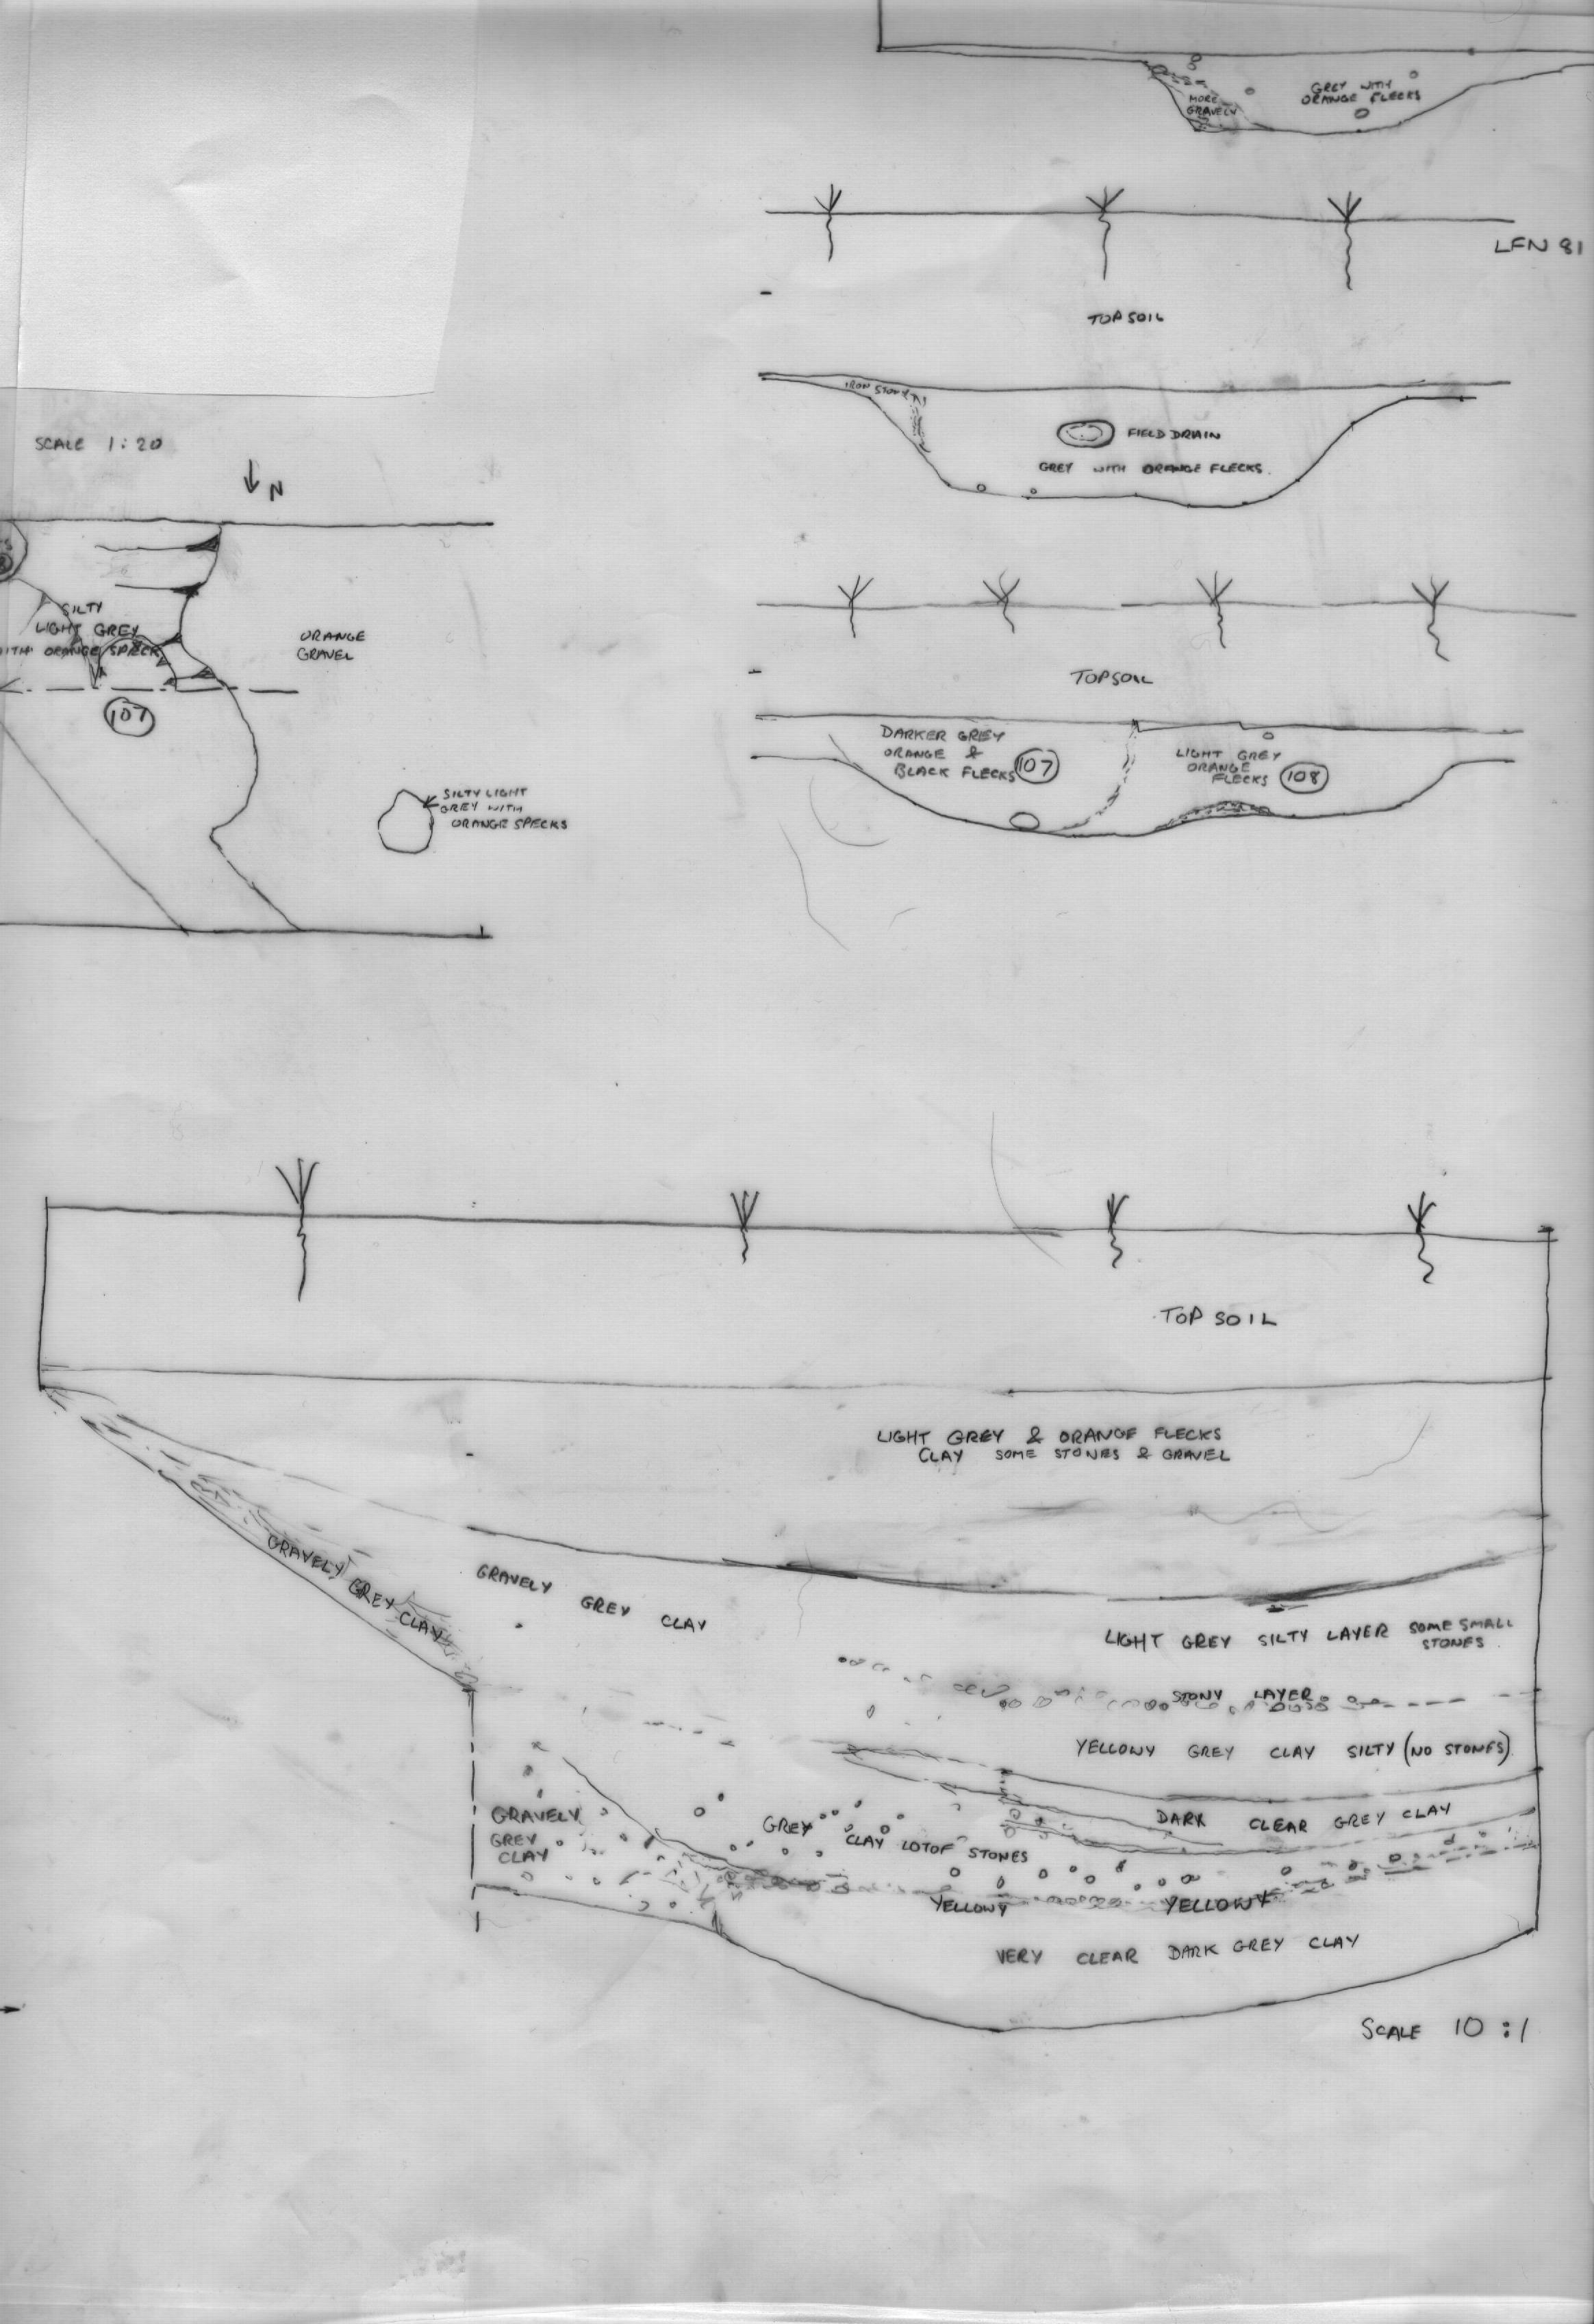 MORE
GRAVELY
GREY WITH
ORANGE FLECKS
LFN 81
TOPSOIL
IRON STONY
FIELD DRAIN
GREY WITH ORANGE FLECKS
SCALE 1:20
N
SILTY
LIGHT GREY
WITH ORANGE SPECK
107
ORANGE
GRAVEL
SILTY LIGHT
GREY WITH
ORANGE SPECKS
TOPSOIL
DARKER GREY
ORANGE &
BLACK FLECKS 107
LIGHT GREY
ORANGE
FLECKS 108
TOP SOIL
LIGHT GREY & ORANGE FLECKS
CLAY SOME STONES & GRAVEL
GRAVELY GREY CLAY
GRAVELY GREY CLAY
LIGHT GREY SILTY LAYER SOME SMALL
STONES
STONY LAYER
YELLOWY GREY CLAY SILTY (NO STONES)
DARK CLEAR GREY CLAY
GRAVELY
GREY
CLAY
GREY CLAY LOT OF STONES
YELLOWY YELLOWY
VERY CLEAR DARK GREY CLAY
SCALE 10:1